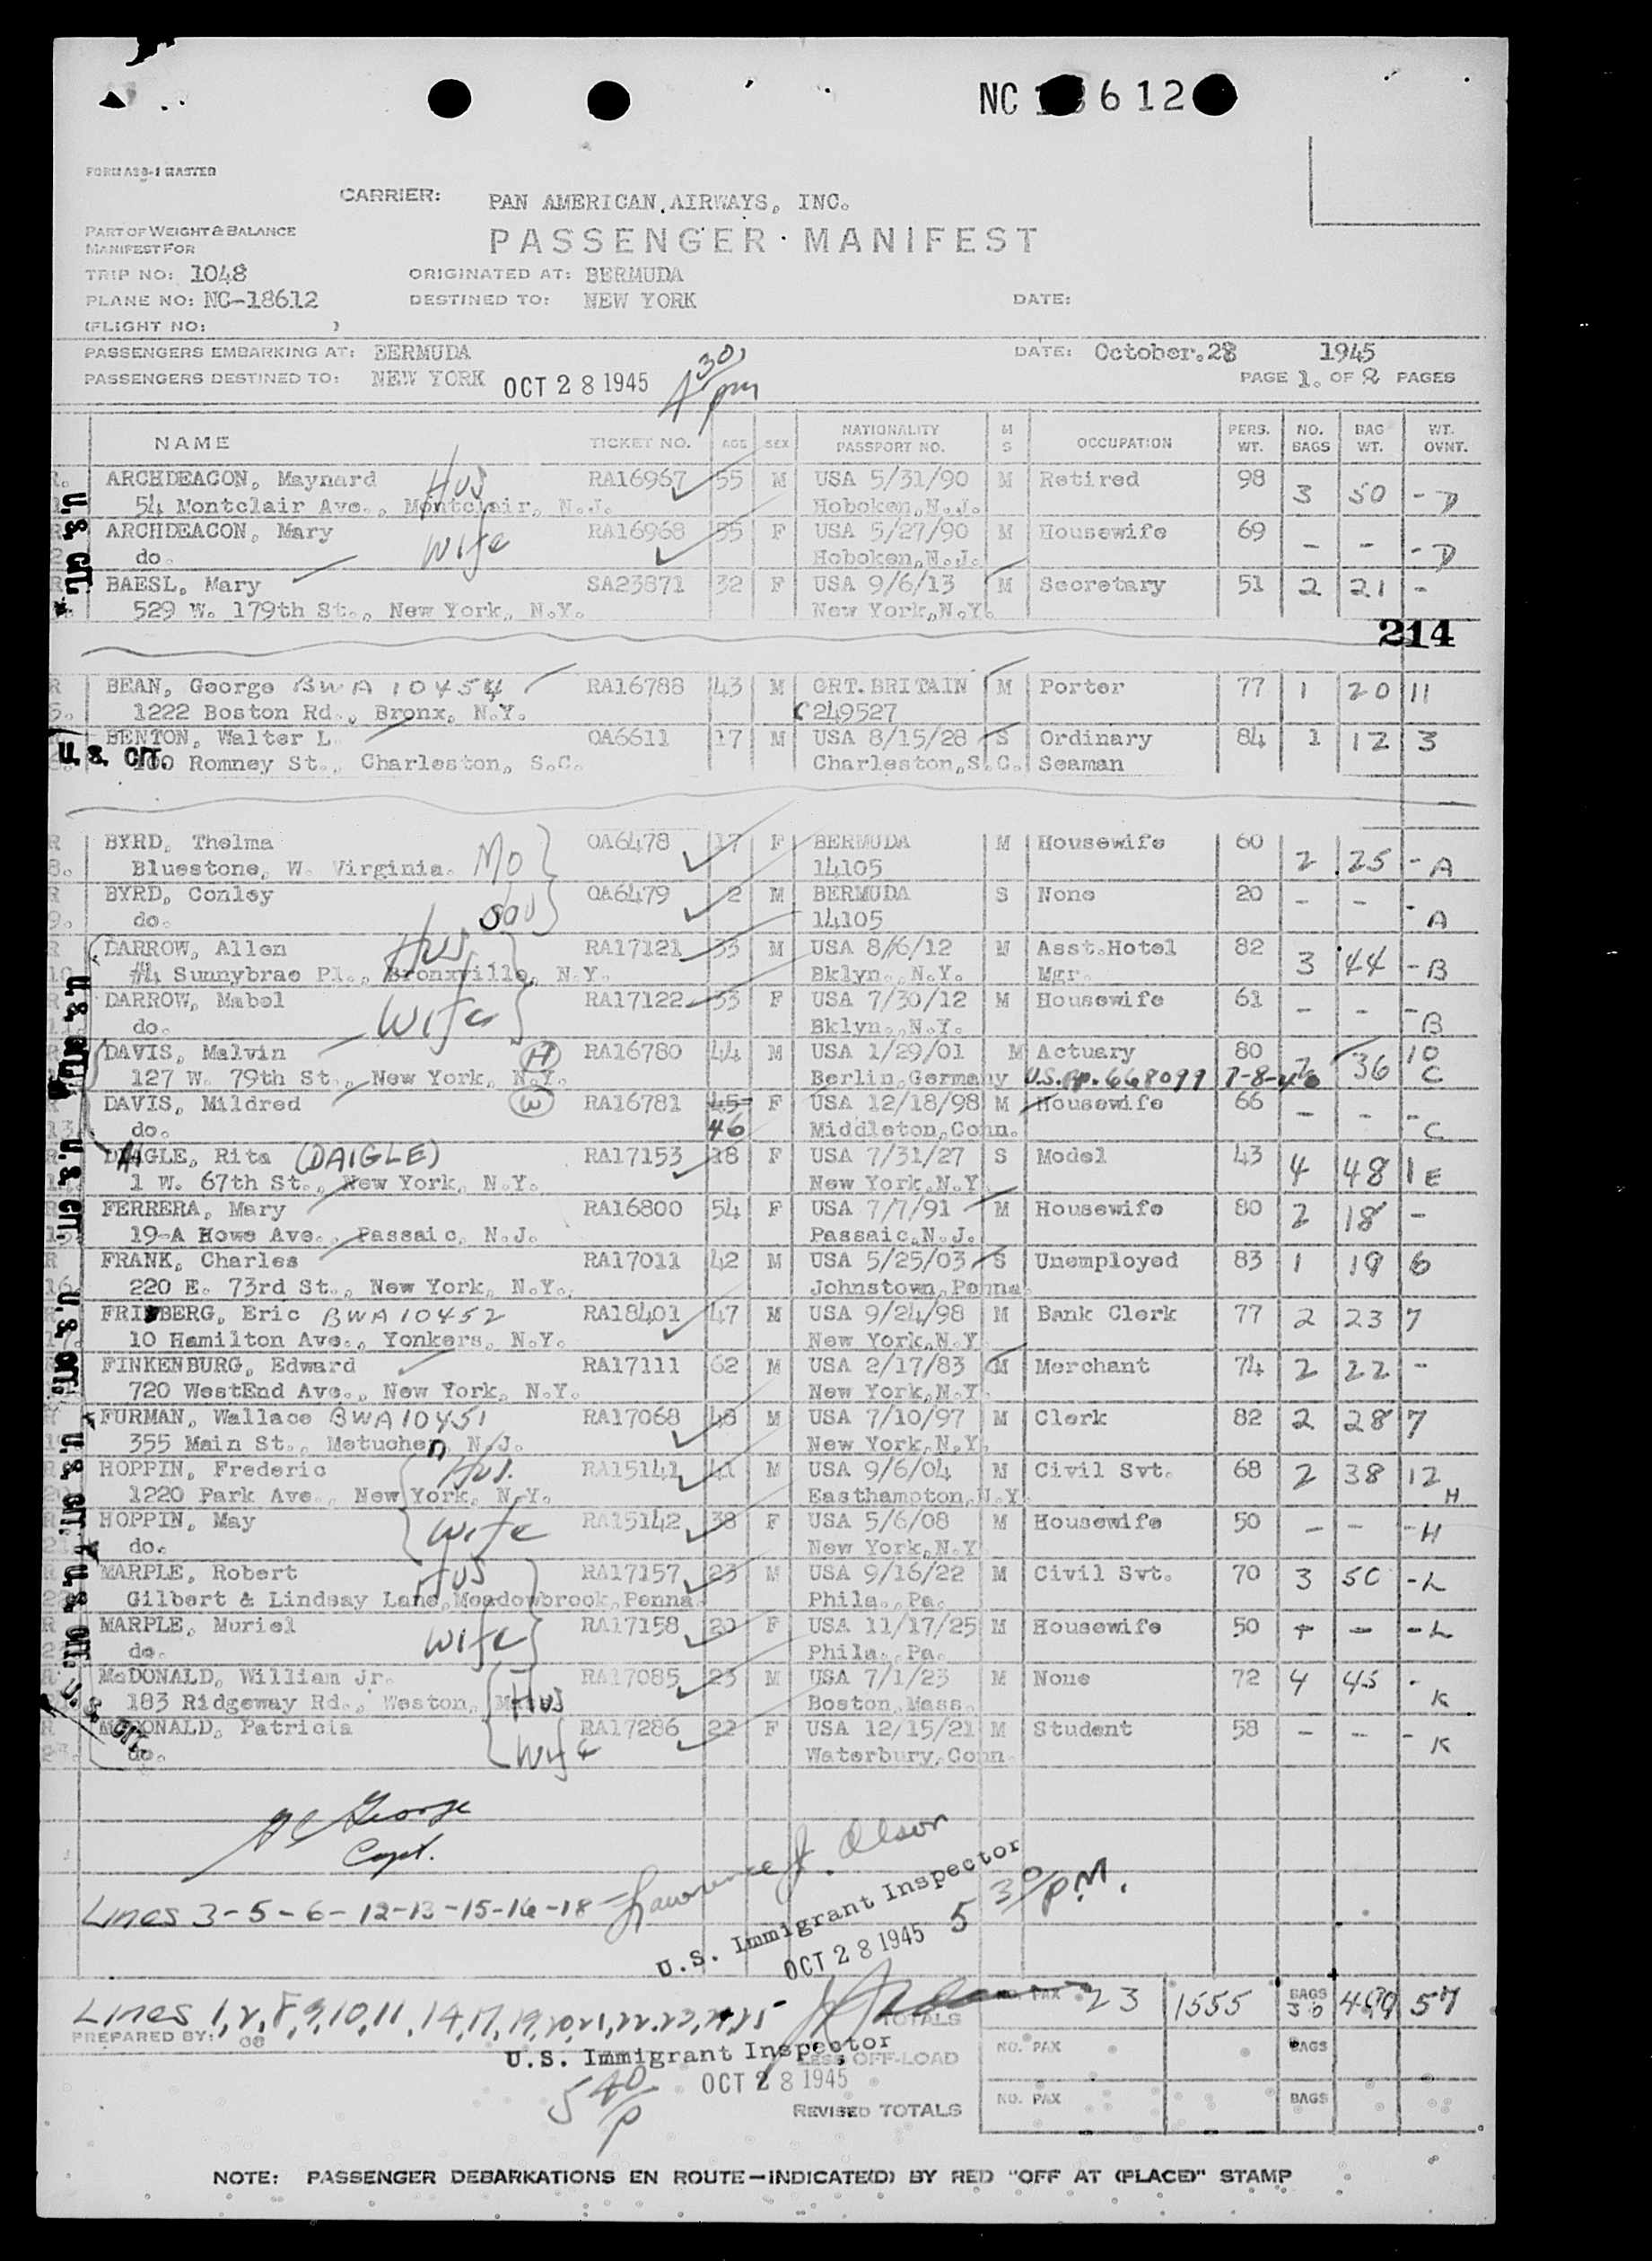 NC 18612
FORM A28-1 MASTER
CARRIER: PAN AMERICAN AIRWAYS, INC.
PART OF WEIGHT & BALANCE
MANIFEST FOR
PASSENGER MANIFEST
TRIP NO: 1048 ORIGINATED AT: BERMUDA
PLANE NO: NC-18612 DESTINED TO: NEW YORK DATE:
(FLIGHT NO: )
PASSENGERS EMBARKING AT: BERMUDA DATE: October 28 1945
PASSENGERS DESTINED TO: NEW YORK OCT 28 1945 4 30/pm PAGE 1. OF 2 PAGES
NAME TICKET NO. AGE SEX NATIONALITY PASSPORT NO. M S OCCUPATION PERS. WT. NO. BAGS BAG WT. WT. OVNT.
ARCHDEACON, Maynard Hus RA16967 55 M USA 5/31/90 M Retired 98 3 50 - D
54 Montclair Ave., Montclair, N.J. Hoboken, N.J.
ARCHDEACON, Mary Wife RA16968 55 F USA 5/27/90 M Housewife 69 - - - D
do. Hoboken, N.J.
BAESL, Mary SA23871 32 F USA 9/6/13 M Secretary 51 2 21 -
529 W. 179th St., New York, N.Y. New York, N.Y.
U.S. CIT.
214
BEAN, George BWA 10454 RA16788 43 M GRT. BRITAIN M Porter 77 1 20 11
1222 Boston Rd., Bronx, N.Y. C249527
BENTON, Walter L OA6611 17 M USA 8/15/28 S Ordinary 84 1 12 3
U.S. CIT. 100 Romney St., Charleston, S.C. Charleston, S.C. Seaman
BYRD, Thelma Mo OA6478 17 F BERMUDA M Housewife 60 2 25 - A
Bluestone, W. Virginia. 14105
BYRD, Conley Son OA6479 2 M BERMUDA S None 20 - - - A
do. 14105
DARROW, Allen Hus RA17121 33 M USA 8/6/12 M Asst. Hotel 82 3 44 - B
#4 Sunnybrae Pl., Bronxville, N.Y. Bklyn., N.Y. Mgr.
DARROW, Mabel Wife RA17122 33 F USA 7/30/12 M Housewife 61 - - - B
do. Bklyn., N.Y.
DAVIS, Malvin H RA16780 44 M USA 1/29/01 M Actuary 80 2 36 10 C
127 W. 79th St., New York, N.Y. Berlin, Germany U.S. pp. 668099 7-8-46
DAVIS, Mildred W RA16781 45 46 F USA 12/18/98 M Housewife 66 - - - C
do. Middleton, Conn.
DAIGLE, Rita (DAIGLE) RA17153 18 F USA 7/31/27 S Model 43 4 48 1 E
1 W. 67th St., New York, N.Y. New York, N.Y.
FERRERA, Mary RA16800 54 F USA 7/7/91 M Housewife 80 2 18 -
19-A Howe Ave., Passaic, N.J. Passaic, N.J.
FRANK, Charles RA17011 42 M USA 5/25/03 S Unemployed 83 1 19 6
220 E. 73rd St., New York, N.Y. Johnstown, Penna.
FRIBERG, Eric BWA 10452 RA18401 47 M USA 9/24/98 M Bank Clerk 77 2 23 7
10 Hamilton Ave., Yonkers, N.Y. New York, N.Y.
FINKENBURG, Edward RA17111 62 M USA 2/17/83 M Merchant 74 2 22 -
720 WestEnd Ave., New York, N.Y. New York, N.Y.
FURMAN, Wallace BWA 10451 RA17068 48 M USA 7/10/97 M Clerk 82 2 28 7
355 Main St., Metuchen, N.J. New York, N.Y.
HOPPIN, Frederic Hus. RA15141 41 M USA 9/6/04 M Civil Svt. 68 2 38 12 H
1220 Park Ave., New York, N.Y. Easthampton, N.Y.
HOPPIN, May Wife RA15142 38 F USA 5/6/08 M Housewife 50 - - - H
do. New York, N.Y.
MARPLE, Robert Hus RA17157 23 M USA 9/16/22 M Civil Svt. 70 3 50 - L
Gilbert & Lindsay Lane, Meadowbrook, Penna. Phila., Pa.
MARPLE, Muriel Wife RA17158 20 F USA 11/17/25 M Housewife 50 - - - L
do. Phila., Pa.
McDONALD, William Jr. RA17085 23 M USA 7/1/23 M None 72 4 45 - K
183 Ridgeway Rd., Weston, Hus Boston, Mass.
McDONALD, Patricia Wife RA17286 22 F USA 12/15/21 M Student 58 - - - K
do. Waterbury, Conn.
George
Capt.
Lines 3-5-6-12-13-15-16-18 Lawrence J. Olson
U.S. Immigrant Inspector
OCT 28 1945 5 30/PM.
Lines 1,2,8,9,10,11,14,17,19,20,21,22,23,24,25
NO. PAX 23 1555 BAGS 30 499 57
TOTALS
PREPARED BY:
U.S. Immigrant Inspector
LESS OFF-LOAD NO. PAX BAGS
5 40/p OCT 28 1945
REVISED TOTALS NO. PAX BAGS
NOTE: PASSENGER DEBARKATIONS EN ROUTE—INDICATE(D) BY RED "OFF AT (PLACE)" STAMP